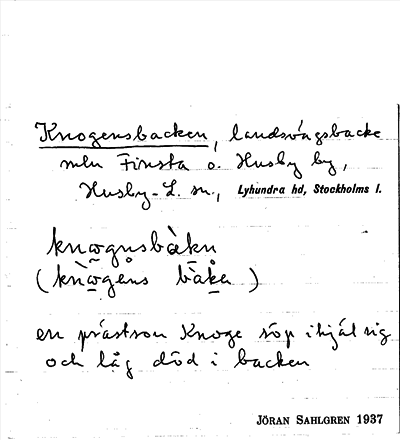 Knogensbacken, landsvägsbacke
mln Finsta o. Husby by,
Husby-L. sn., Lyhundra hd, Stockholms l.
knωgnsbàkn
(knωgens bàka)
en prästson Knoge söp ihjäl sig
och låg död i backen
JÖRAN SAHLGREN 1937